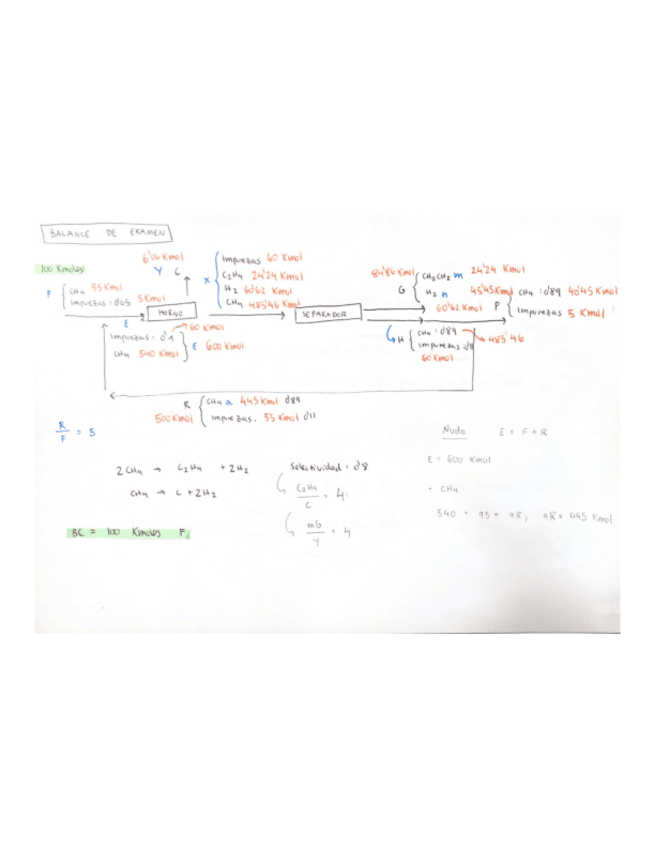 BALANCE DE EXAMEN
100 Kmoles
F
CH4 95 Kmol
impurezas: 0'05 5 Kmol
6'06 Kmol
Y C
X
impurezas 60 Kmol
C2H4 24'24 Kmol
H2 60'62 Kmol
CH4 485'46 Kmol
HORNO
SEPARADOR
84'86 Kmol
G
CH2CH2 m 24'24 Kmol
H2 n 45'45 Kmol
60'62 Kmol
P
CH4: 0'89 40'45 Kmol
impurezas 5 Kmol
E
impurezas: 0'1 60 Kmol
CH4 540 Kmol
E 600 Kmol
H
CH4: 0'89 485'46
impurezas 0'11
60 Kmol
R
CH4 a 445 Kmol 0'89
500 Kmol impurezas. 55 Kmol 0'11
R/F = 5
2CH4 → C2H4 + 2H2
CH4 → C + 2H2
BC = 100 Kmoles F
Selectividad: 0'8
C2H4/C = 4
mG/Y = 4
Nudo E = F + R
E = 600 Kmol
- CH4:
540 = 95 + aR; aR = 445 Kmol